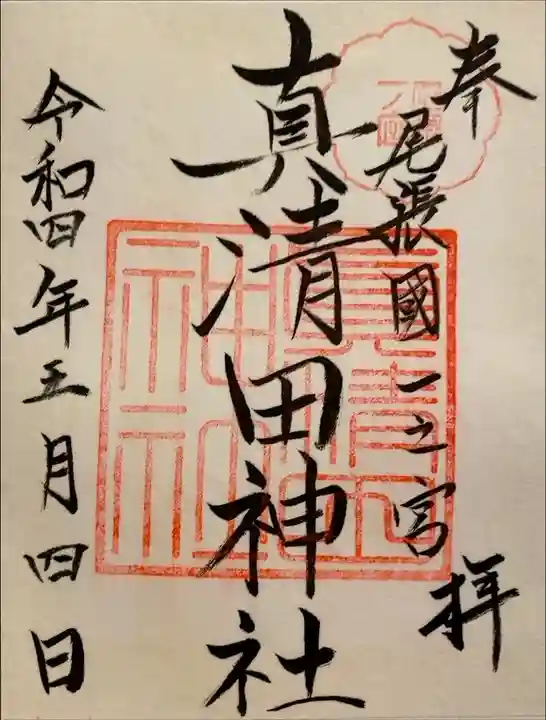 奉拝
尾張國一之宮
真清田神社
令和四年五月四日
真清田神社